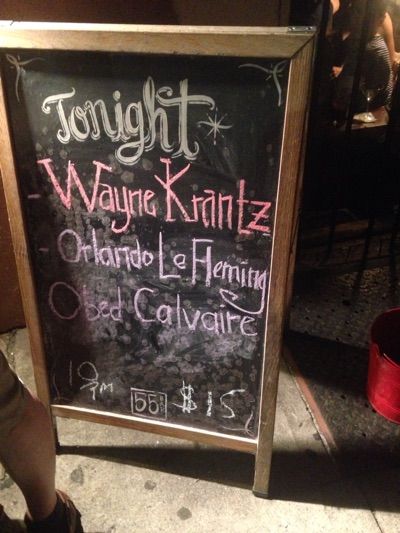 Tonight
- Wayne Krantz
- Orlando Le Fleming
Obed Calvaire
10 PM 55 $15